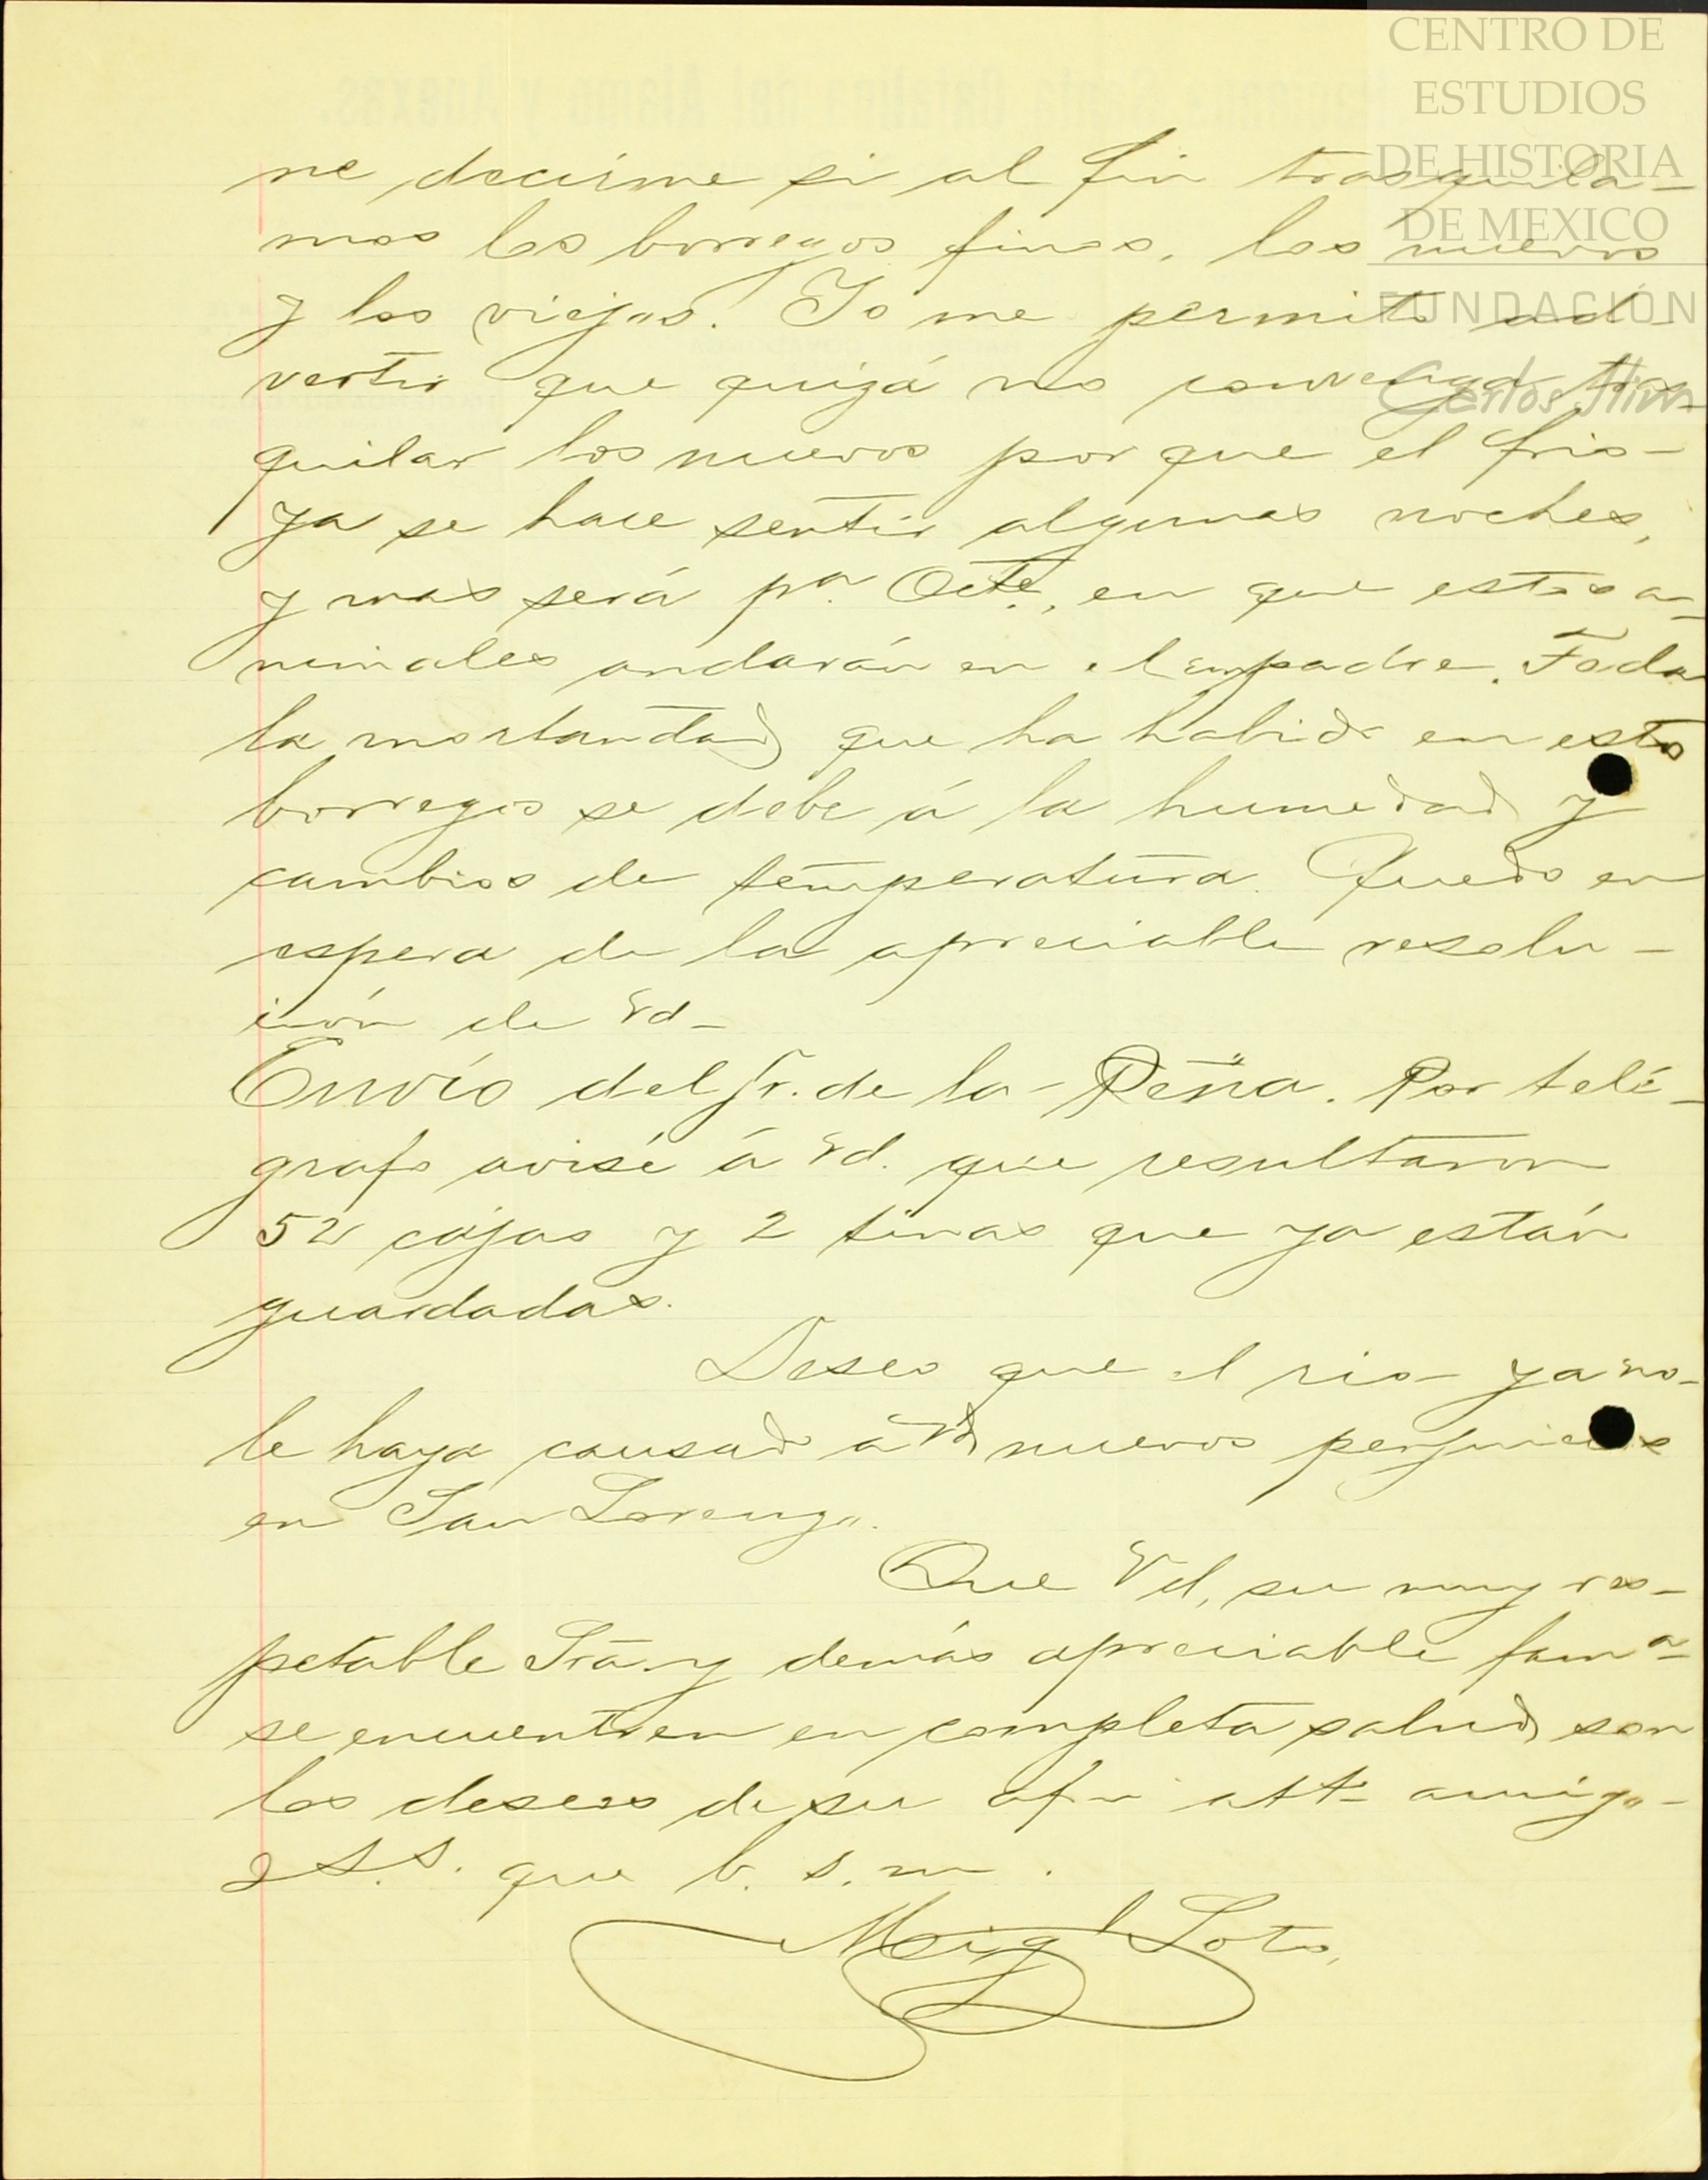 CENTRO DE
ESTUDIOS
DE HISTORIA
DE MEXICO
FUNDACIÓN
Carlos Slim
ne decirme si al fin trasquila-
mos los borregos finos, los nuevos
y los viejos. Yo me permito ad-
vertir que quizá no convenga tras-
quilar los nuevos por que el frio
ya se hace sentir algunas noches,
y mas será pª. Octe., en que estos a-
nimales andarán en el empadre. Toda
la mortandad que ha habido en esto
borregos se debe á la humedad y
cambios de temperatura. Quedo en
espera de la apreciable resolu-
ción de Vd-
Envío del Sr. de la Peña. Por telé-
grafo avisé á Vd. que resultaron
52 cajas y 2 tinas que ya están
guardadas.
Deseo que el rio ya no
le haya causado á Vd nuevos perjuicios
en San Lorenzo.
Que Vd, su muy res-
petable Srã. y demás apreciable famª
se encuentren en completa salud, son
los deseos de su afmo atto amigo
y S.S. que b. s. m.
Migl Soto,